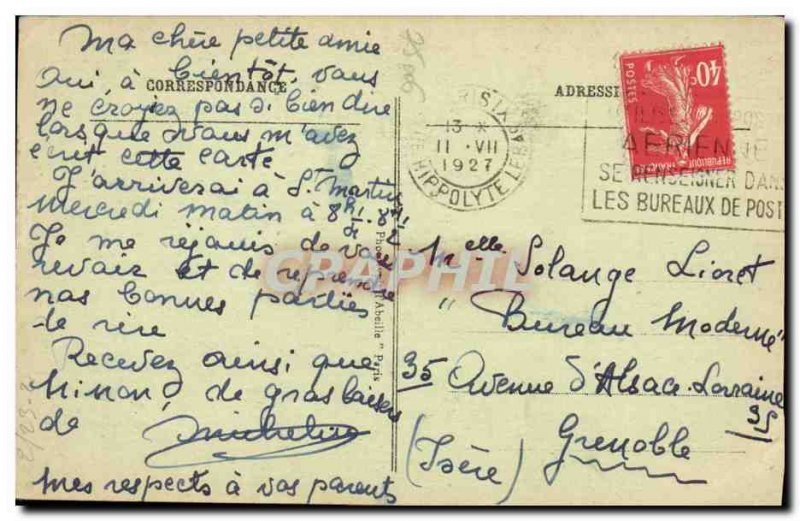 Ma chère petite amie
oui, à bientôt, vous
CORRESPONDANCE
ne croyez pas si bien dire
lorsque vous m'avez
écrit cette carte
J'arriverai à St Martin
mercredi matin à 8h
Je me réjouis de vous
revoir et de reprendre
nos bonnes parties
de rire
Recevez ainsi que
Ninon, de gros baisers
de Micheline
Mes respects à vos parents
ADRESSE
POSTES
40c
REPUBLIQUE FRANÇAISE
13 *
11 · VII
1927
HIPPOLYTE LEBAS
AERIENNE
SE RENSEIGNER DANS
LES BUREAUX DE POST
Melle Solange Lioret
" Bureau Moderne"
35 Avenue d'Alsace-Lorraine
35
Grenoble
(Isère)
Abeille " Paris
CPAPHIL